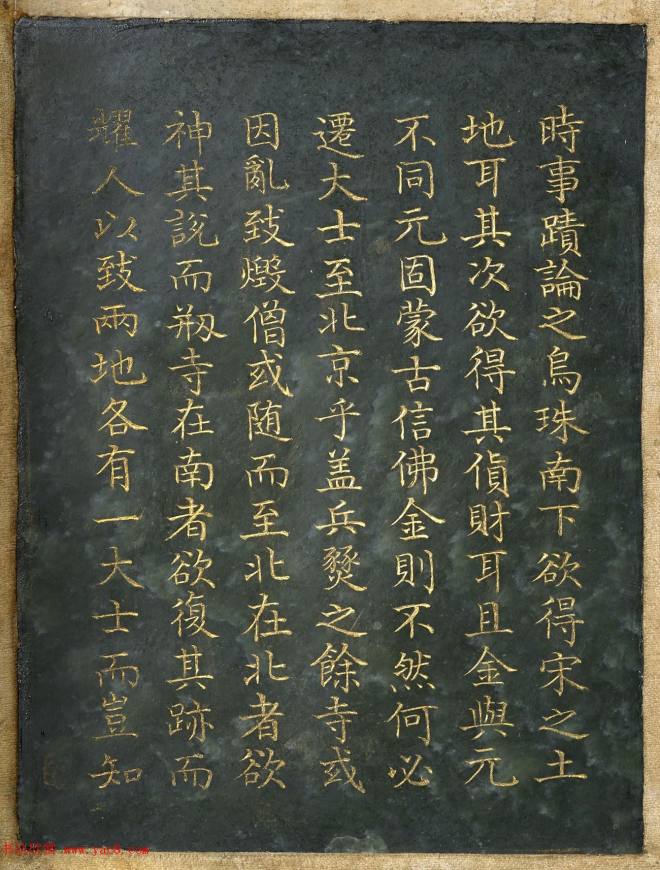 時事蹟論之烏珠南下欲得宋之土
地耳其次欲得其貨財耳且金與元
不同元固蒙古信佛金則不然何必
遷大士至北京乎盖兵燹之餘寺或
因亂致燬僧或随而至北在北者欲
神其說而刱寺在南者欲復其跡而
耀人以致兩地各有一大士而豈知
www.yac8.com